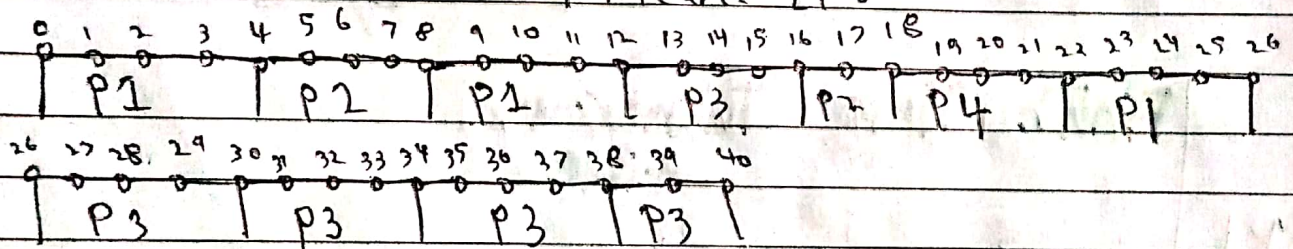 0 1 2 3 4 5 6 7 8 9 10 11 12 13 14 15 16 17 18 19 20 21 22 23 24 25 26
P1 P2 P1 P3 P2 P4 P1
26 27 28 29 30 31 32 33 34 35 36 37 38 39 40
P3 P3 P3 P3